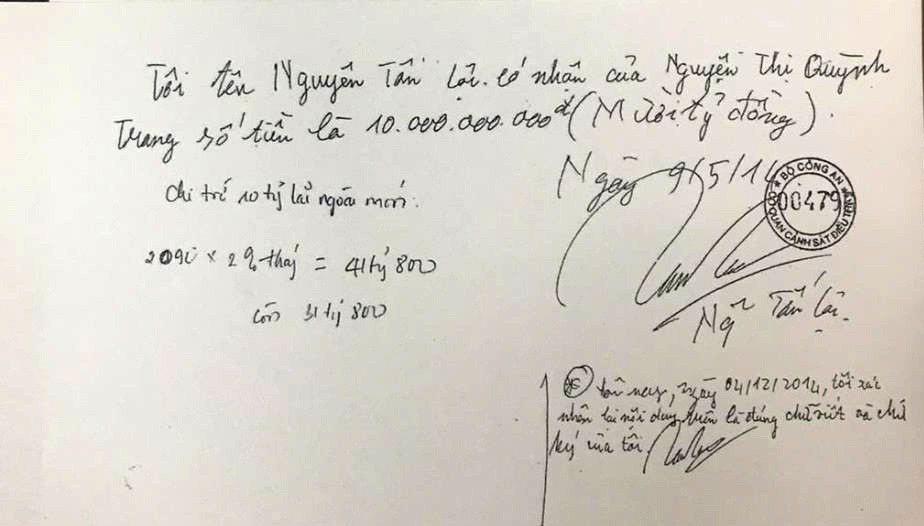 Tôi tên Nguyễn Tấn Lợi. Có nhận của Nguyễn Thị Quỳnh
Trang số tiền là 10.000.000.000đ (Mười tỷ đồng).
Ngày 9/5/14
BỘ CÔNG AN
00479
CƠ QUAN CẢNH SÁT ĐIỀU TRA
Chi trả 10 tỷ lãi ngoài
2090 × 2% tháng = 41 tỷ 800
còn 31 tỷ 800
Ng Tấn Lợi.
ngày 04/12/2014, tôi xác
nhận lại nội dung trên là đúng chữ viết và chữ
ký của tôi.